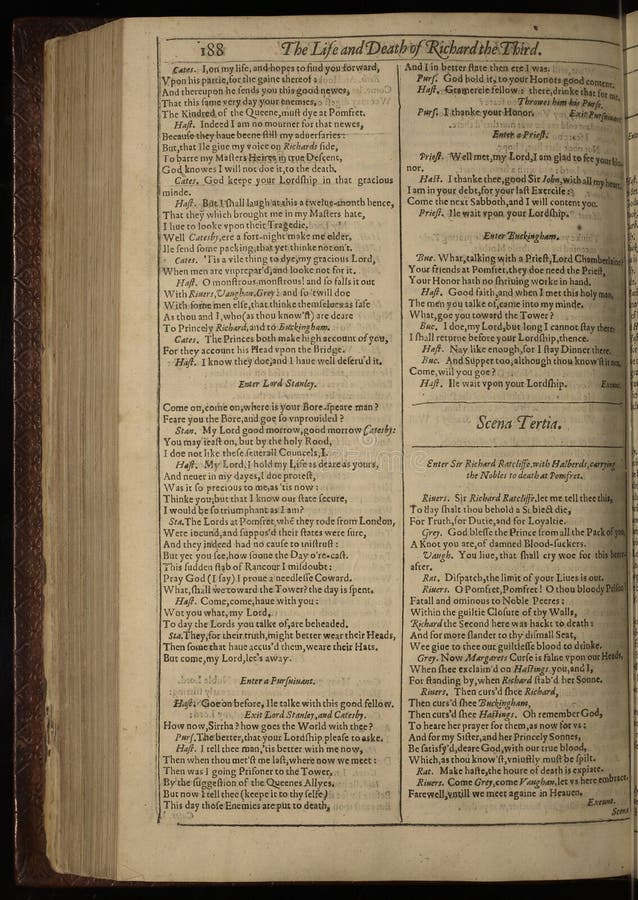 188 The Life and Death of Richard the Third.
Cates. I, on my life, and hopes to find you forward,
Vpon his partie, for the gaine thereof:
And thereupon he sends you this good newes,
That this same very day your enemies,
The Kindred of the Queene, must dye at Pomfret.
Hast. Indeed I am no mourner for that newes,
Because they haue beene still my aduersaries:
But, that Ile giue my voice on Richards side,
To barre my Masters Heires in true Descent,
God knowes I will not doe it, to the death.
Cates. God keepe your Lordship in that gracious
minde.
Hast. But I shall laugh at this a twelue-month hence,
That they which brought me in my Masters hate,
I liue to looke vpon their Tragedie.
Well Catesby, ere a fort-night make me older,
Ile send some packing, that yet thinke not on't.
Cates. 'Tis a vile thing to dye, my gracious Lord,
When men are vnprepar'd, and looke not for it.
Hast. O monstrous, monstrous! and so falls it out
With Riuers, Vaughan, Grey: and so 'twill doe
With some men else, that thinke themselues as safe
As thou and I, who (as thou know'st) are deare
To Princely Richard, and to Buckingham.
Cates. The Princes both make high account of you,
For they account his Head vpon the Bridge.
Hast. I know they doe, and I haue well deseru'd it.
Enter Lord Stanley.
Come on, come on, where is your Bore-speare man?
Feare you the Bore, and goe so vnprouided?
Stan. My Lord good morrow, good morrow Catesby:
You may ieast on, but by the holy Rood,
I doe not like these seuerall Councels, I.
Hast. My Lord, I hold my Life as deare as yours,
And neuer in my dayes, I doe protest,
Was it so precious to me, as 'tis now:
Thinke you, but that I know our state secure,
I would be so triumphant as I am?
Sta. The Lords at Pomfret, whē they rode from London,
Were iocund, and suppos'd their states were sure,
And they indeed had no cause to mistrust:
But yet you see, how soone the Day o're-cast.
This sudden stab of Rancour I misdoubt:
Pray God (I say) I proue a needlesse Coward.
What, shall we toward the Tower? the day is spent.
Hast. Come, come, haue with you:
Wot you what, my Lord,
To day the Lords you talke of, are beheaded.
Sta. They, for their truth, might better wear their Heads,
Then some that haue accus'd them, weare their Hats.
But come, my Lord, let's away.
Enter a Pursuiuant.
Hast. Goe on before, Ile talke with this good fellow.
Exit Lord Stanley, and Catesby.
How now, Sirrha? how goes the World with thee?
Purs. The better, that your Lordship please to aske.
Hast. I tell thee man, 'tis better with me now,
Then when thou met'st me last, where now we meet:
Then was I going Prisoner to the Tower,
By the suggestion of the Queenes Allyes.
But now I tell thee (keepe it to thy selfe)
This day those Enemies are put to death,
And I in better state then ere I was.
Purs. God hold it, to your Honors good content.
Hast. Gramercie fellow: there, drinke that for me.
Throwes him his Purse.
Purs. I thanke your Honor. Exit Pursuiuant.
Enter a Priest.
Priest. Well met, my Lord, I am glad to see your
nor.
Hast. I thanke thee, good Sir Iohn, with all my heart.
I am in your debt, for your last Exercise:
Come the next Sabboth, and I will content you.
Priest. Ile wait vpon your Lordship.
Enter Buckingham.
Buc. What, talking with a Priest, Lord Chamberlaine?
Your friends at Pomfret, they doe need the Priest,
Your Honor hath no shriuing worke in hand.
Hast. Good faith, and when I met this holy man,
The men you talke of, came into my minde.
What, goe you toward the Tower?
Buc. I doe, my Lord, but long I cannot stay there:
I shall returne before your Lordship, thence.
Hast. Nay like enough, for I stay Dinner there.
Buc. And Supper too, although thou know'st it not.
Come, will you goe?
Hast. Ile wait vpon your Lordship. Exeunt.
Scena Tertia.
Enter Sir Richard Ratcliffe, with Halberds, carrying
the Nobles to death at Pomfret.
Riuers. Sir Richard Ratcliffe, let me tell thee this,
To day shalt thou behold a Subiect die,
For Truth, for Dutie, and for Loyaltie.
Grey. God blesse the Prince from all the Pack of you,
A Knot you are, of damned Blood-suckers.
Vaugh. You liue, that shall cry woe for this heere-
after.
Rat. Dispatch, the limit of your Liues is out.
Riuers. O Pomfret, Pomfret! O thou bloody Prison!
Fatall and ominous to Noble Peeres:
Within the guiltie Closure of thy Walls,
Richard the Second here was hackt to death:
And for more slander to thy dismall Seat,
Wee giue to thee our guiltlesse blood to drinke.
Grey. Now Margarets Curse is falne vpon our Heads,
When shee exclaim'd on Hastings, you, and I,
For standing by, when Richard stab'd her Sonne.
Riuers. Then curs'd shee Richard,
Then curs'd shee Buckingham,
Then curs'd shee Hastings. Oh remember God,
To heare her prayer for them, as now for vs:
And for my Sister, and her Princely Sonnes,
Be satisfy'd, deare God, with our true blood,
Which, as thou know'st, vniustly must be spilt.
Rat. Make haste, the houre of death is expiate.
Riuers. Come Grey, come Vaughan, let vs here embrace.
Farewell, vntill we meet againe in Heauen.
Exeunt.
Scena